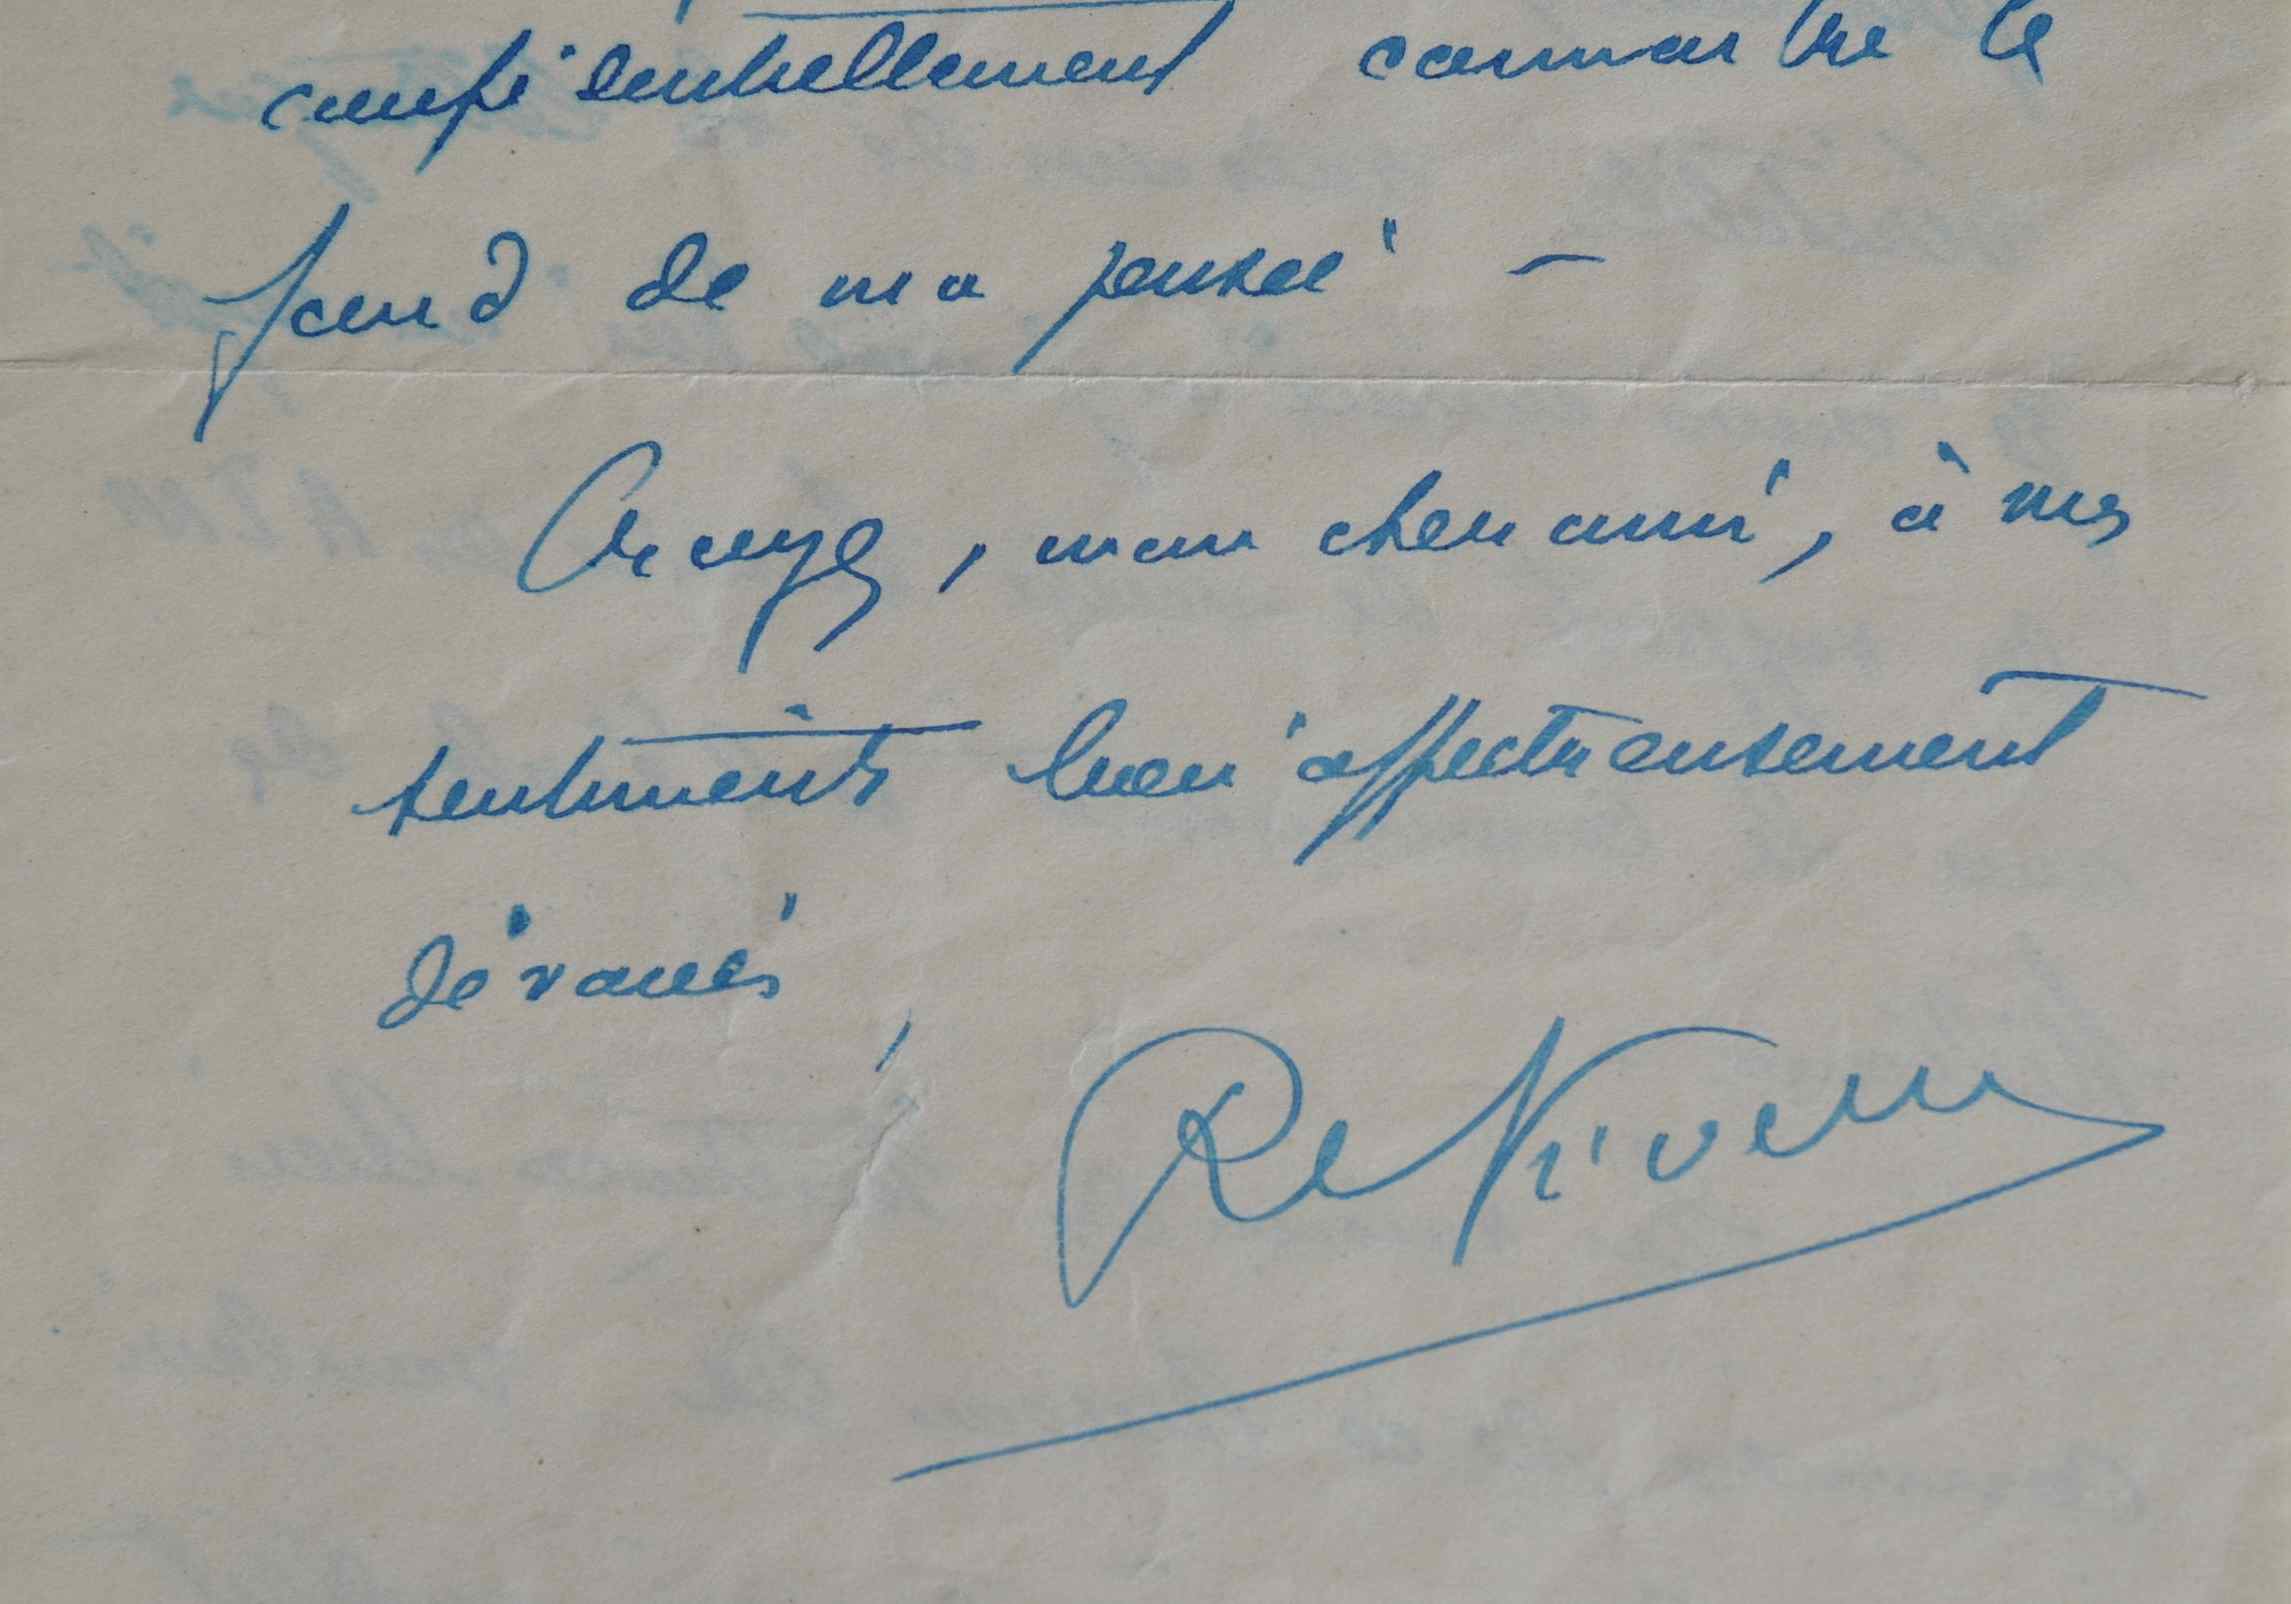 confidentiellement connaître le
fond de ma pensée —
Croyez, mon cher ami, à mes
sentiments bien affectueusement
dévoués,